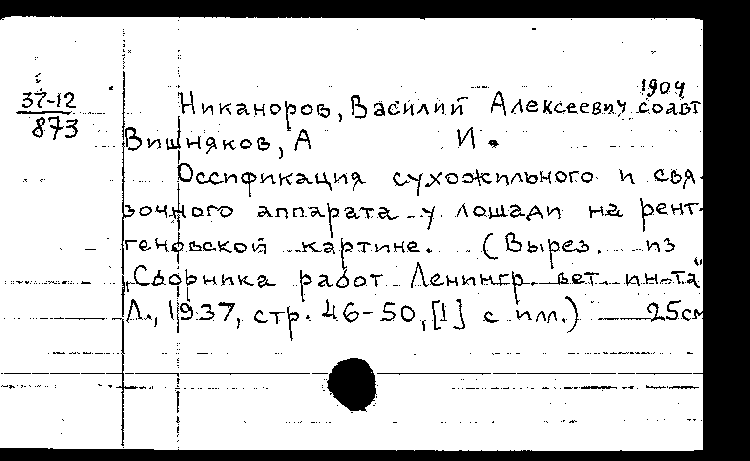 37-12
873
1904
Никаноров, Василий Алексеевич соавт
Вишняков, А И.
Оссификация сухожильного и свя-
зочного аппарата у лошади на рент-
геновской картине. (Вырез. из
„Сборника работ Ленингр. вет. ин-та"
Л., 1937, стр. 46-50, [1] с илл.) 25см